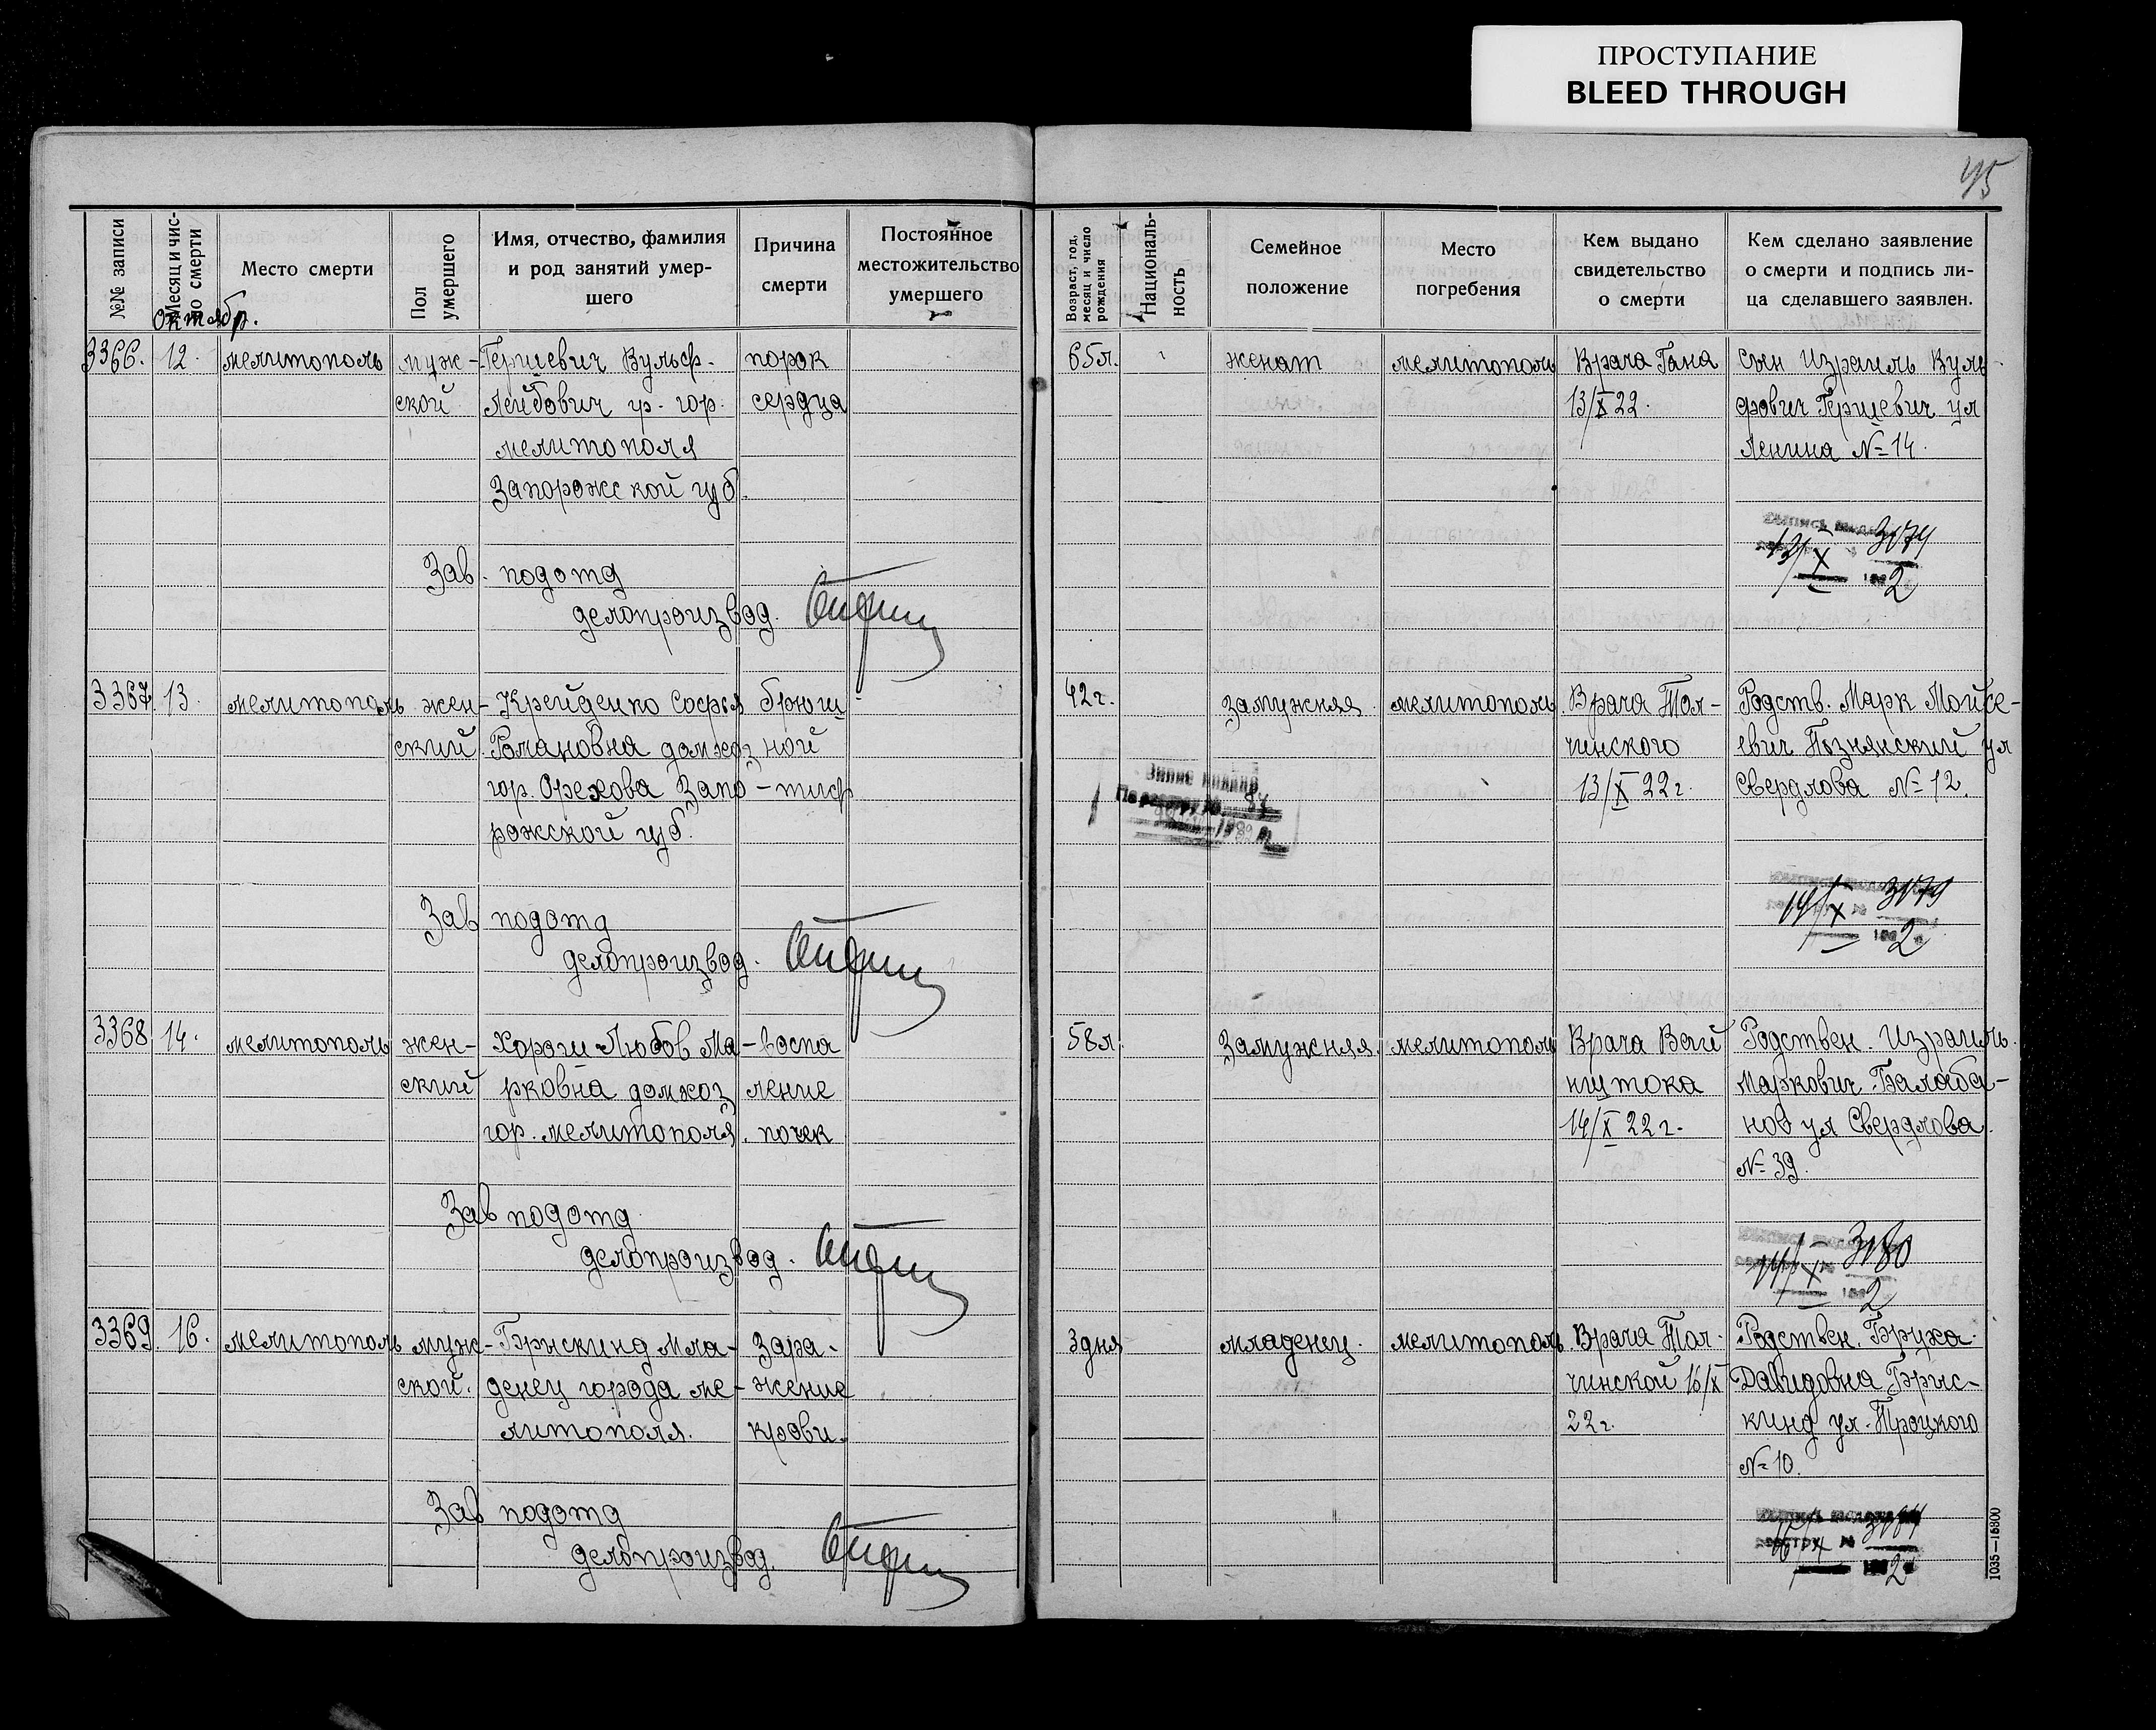 ПРОСТУПАНИЕ
BLEED THROUGH
45
№№ записи
Месяц и чис-
ло смерти
Место смерти
Пол
умершего
Имя, отчество, фамилия
и род занятий умер-
шего
Причина
смерти
Постоянное
местожительство
умершего
Возраст, год,
месяц и число
рождения
Националь-
ность
Семейное
положение
Место
погребения
Кем выдано
свидетельство
о смерти
Кем сделано заявление
о смерти и подпись ли-
ца сделавшего заявлен.
Октябр.
3366.
12.
мелитополь
муж-
ской
Гершевич Вульф-
Лейбович гр. гор.
мелитополя
Запорожской губ.
порок
сердца
65л.
женат
мелитополь
Врача Гана
13/X 22.
сын Израиль Вуль-
фович Гершевич ул
Ленина № 14.
Зав. подотд
делопроизвод.
13/X
2
3367.
13.
мелитополь
жен-
ский
Крейденко Софья
Романовна домхоз
гор. Орехова Запо-
рожской губ.
брюш-
ной
тиф
42г.
замужняя
мелитополь
Врача Тол-
чинского
13/X 22г.
Родств. Марк Мойсе-
евич Познянский ул
Свердлова № 12.
Зав подотд
делопроизвод.
14/X
2
3368
14.
мелитополь
жен-
ский
Хорош Любов Ма-
рковна домхоз
гор. мелитополя.
воспа
ление
почек
58л.
Замужняя.
мелитополь
Врача Вай
нштока
14/X 22г.
Родствен. Израиль
Маркович Балаба-
нов ул Свердлова
№ 39.
Зав подотд
делопроизвод.
14/X
3180
2
3369.
16.
мелитополь
муж-
ской.
Брыскинд Мла-
денец города ме-
литополя.
Зара-
жение
крови.
3дня
младенец.
мелитополь
Врача Тол-
чинской 16/X
22г.
Родствен. Бруха
Давидовна Брыс-
кинд ул. Троцкого
№ 10.
Зав подотд
делопроизвод.
2
1035—15800